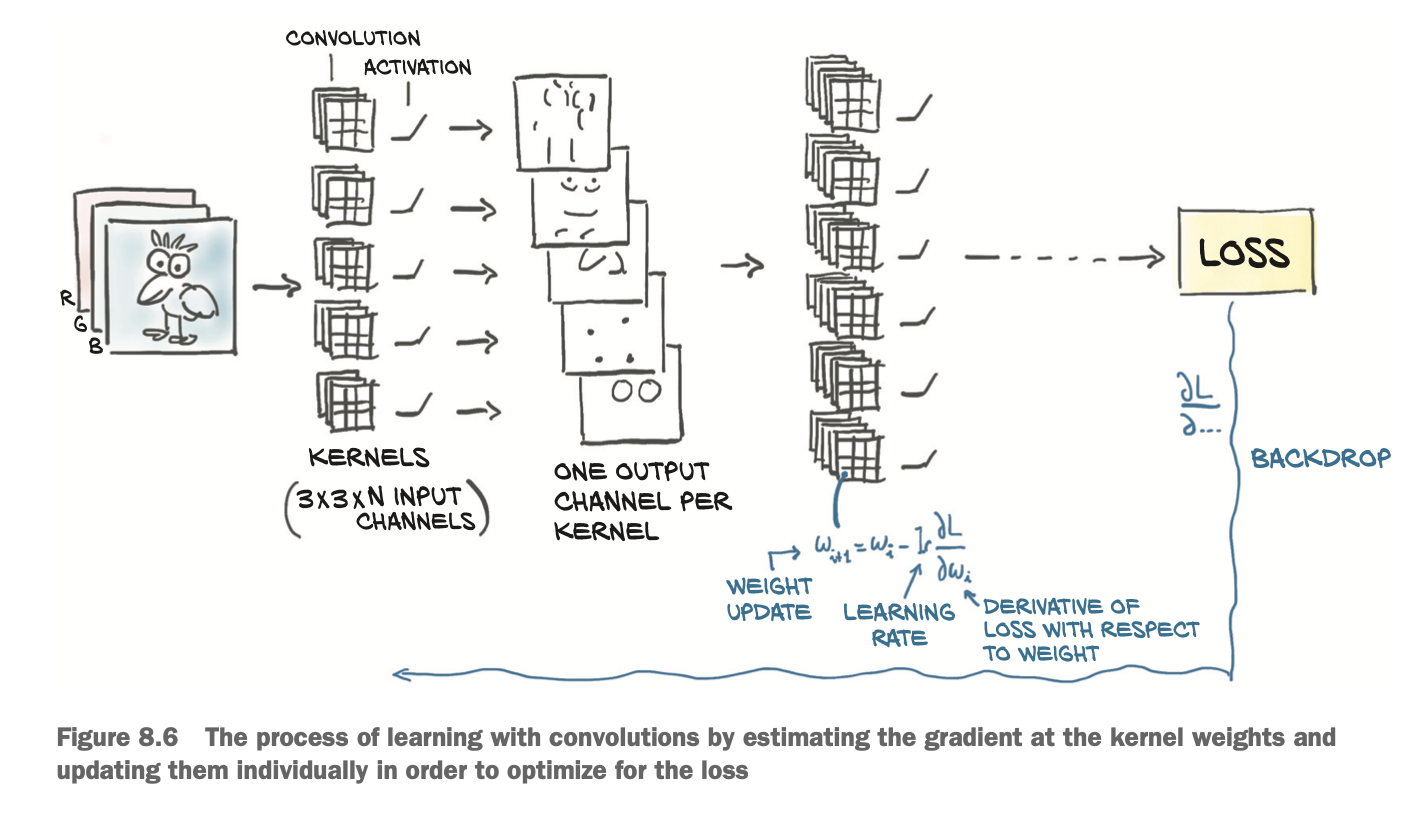 CONVOLUTION
ACTIVATION
R
G
B
KERNELS
(3X3XN INPUT
CHANNELS)
ONE OUTPUT
CHANNEL PER
KERNEL
LOSS
∂L
∂...
BACKDROP
ωᵢ₊₁ = ωᵢ - lr ∂L
∂ωᵢ
WEIGHT
UPDATE
LEARNING
RATE
DERIVATIVE OF
LOSS WITH RESPECT
TO WEIGHT
Figure 8.6 The process of learning with convolutions by estimating the gradient at the kernel weights and
updating them individually in order to optimize for the loss